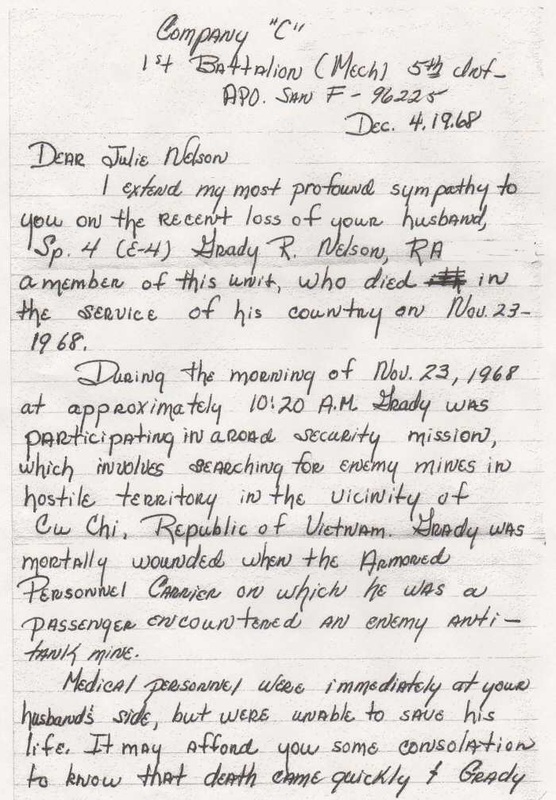 Company "C"
1st Battalion (Mech) 5th Inf-
APO. San F - 96225
Dec. 4, 1968
Dear Julie Nelson
I extend my most profound sympathy to
you on the recent loss of your husband,
Sp. 4 (E-4) Grady R. Nelson, RA
a member of this unit, who died in
the service of his country on Nov. 23-
1968.
During the morning of Nov. 23, 1968
at approximately 10:20 A.M. Grady was
participating in a road security mission,
which involves searching for enemy mines in
hostile territory in the vicinity of
Cu Chi, Republic of Vietnam. Grady was
mortally wounded when the Armored
Personnel Carrier on which he was a
passenger encountered an enemy anti-
tank mine.
Medical personnel were immediately at your
husband's side, but were unable to save his
life. It may afford you some consolation
to know that death came quickly & Grady